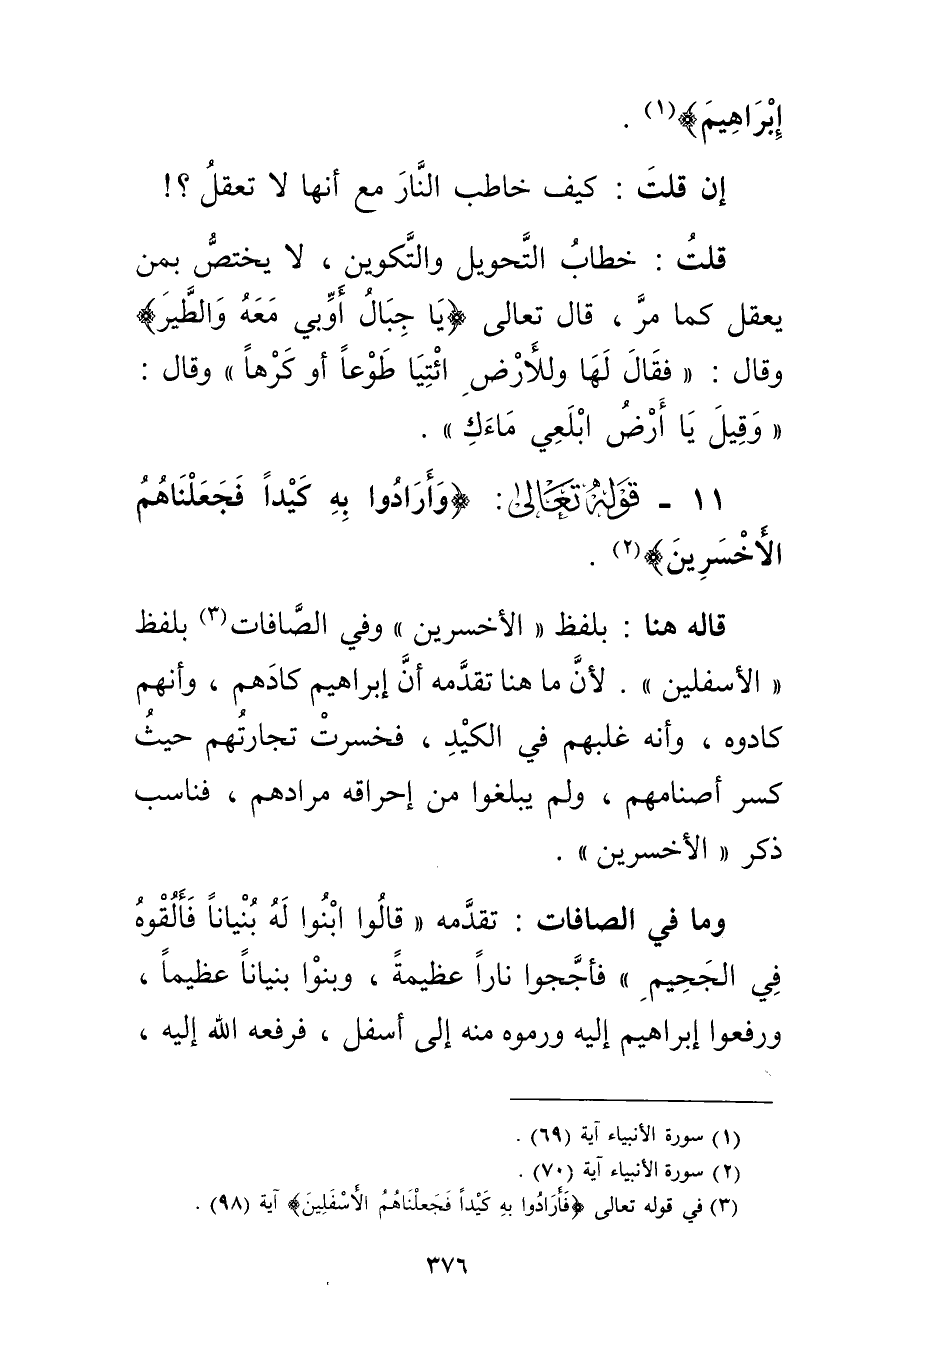 إِبْرَاهِيمَ﴾(١) .
إن قلتَ : كيف خاطب النَّارَ مع أنها لا تعقلُ ؟!
قلتُ : خطابُ التَّحويل والتَّكوين ، لا يختصُّ بمن
يعقل كما مرَّ ، قال تعالى ﴿يَا جِبَالُ أَوِّبي مَعَهُ وَالطَّيرَ﴾
وقال : « فقَالَ لَهَا وللأَرْضِ ائْتِيَا طَوْعاً أو كَرْهاً » وقال :
« وَقِيلَ يَا أَرْضُ ابْلَعِي مَاءَكِ » .
١١ - قَوْلُهُ تَعَالَىٰ : ﴿وَأَرَادُوا بِهِ كَيْداً فَجَعَلْنَاهُمُ
الأَخْسَرِينَ﴾(٢) .
قاله هنا : بلفظ « الأخسرين » وفي الصَّافات(٣) بلفظ
« الأسفلين » . لأنَّ ما هنا تقدَّمه أنَّ إبراهيم كادَهم ، وأنهم
كادوه ، وأنه غلبهم في الكيْدِ ، فخسرتْ تجارتُهم حيثُ
كسر أصنامهم ، ولم يبلغوا من إحراقه مرادهم ، فناسب
ذكر « الأخسرين » .
وما في الصافات : تقدَّمه « قالُوا ابْنُوا لَهُ بُنْياناً فَأَلْقُوهُ
فِي الجَحِيمِ » فأجَّجوا ناراً عظيمةً ، وبنوْا بنياناً عظيماً ،
ورفعوا إبراهيم إليه ورموه منه إلى أسفل ، فرفعه الله إليه ،
(١) سورة الأنبياء آية (٦٩) .
(٢) سورة الأنبياء آية (٧٠) .
(٣) في قوله تعالى ﴿فَأَرَادُوا بِهِ كَيْداً فَجَعلْنَاهُمُ الأَسْفَلِينَ﴾ آية (٩٨) .
٣٧٦